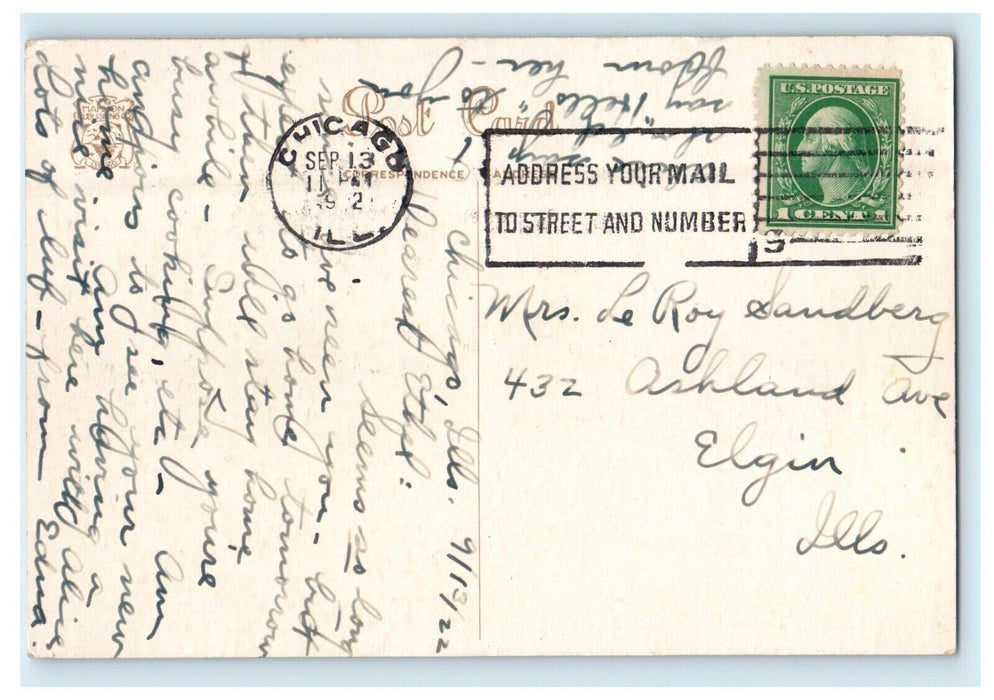 Post Card
CORRESPONDENCE
CHICAGO
SEP 13
11 PM
ILL.
ADDRESS YOUR MAIL
TO STREET AND NUMBER
U.S. POSTAGE
1 CENT 1
Mrs. Le Roy Sandberg
432 Ashland Ave
Elgin
Ills.
Chicago, Ills. 9/13/22
Dearest Ethel:
Seems so long
since we seen you - but
expect to go home tomorrow
& then will stay home
awhile - Suppose youre
busy cooking, etc - Am
anxious to see your new
home. Am having a
nice visit here with Alice
Lots of luf - from Edna.
say "Hello" to you